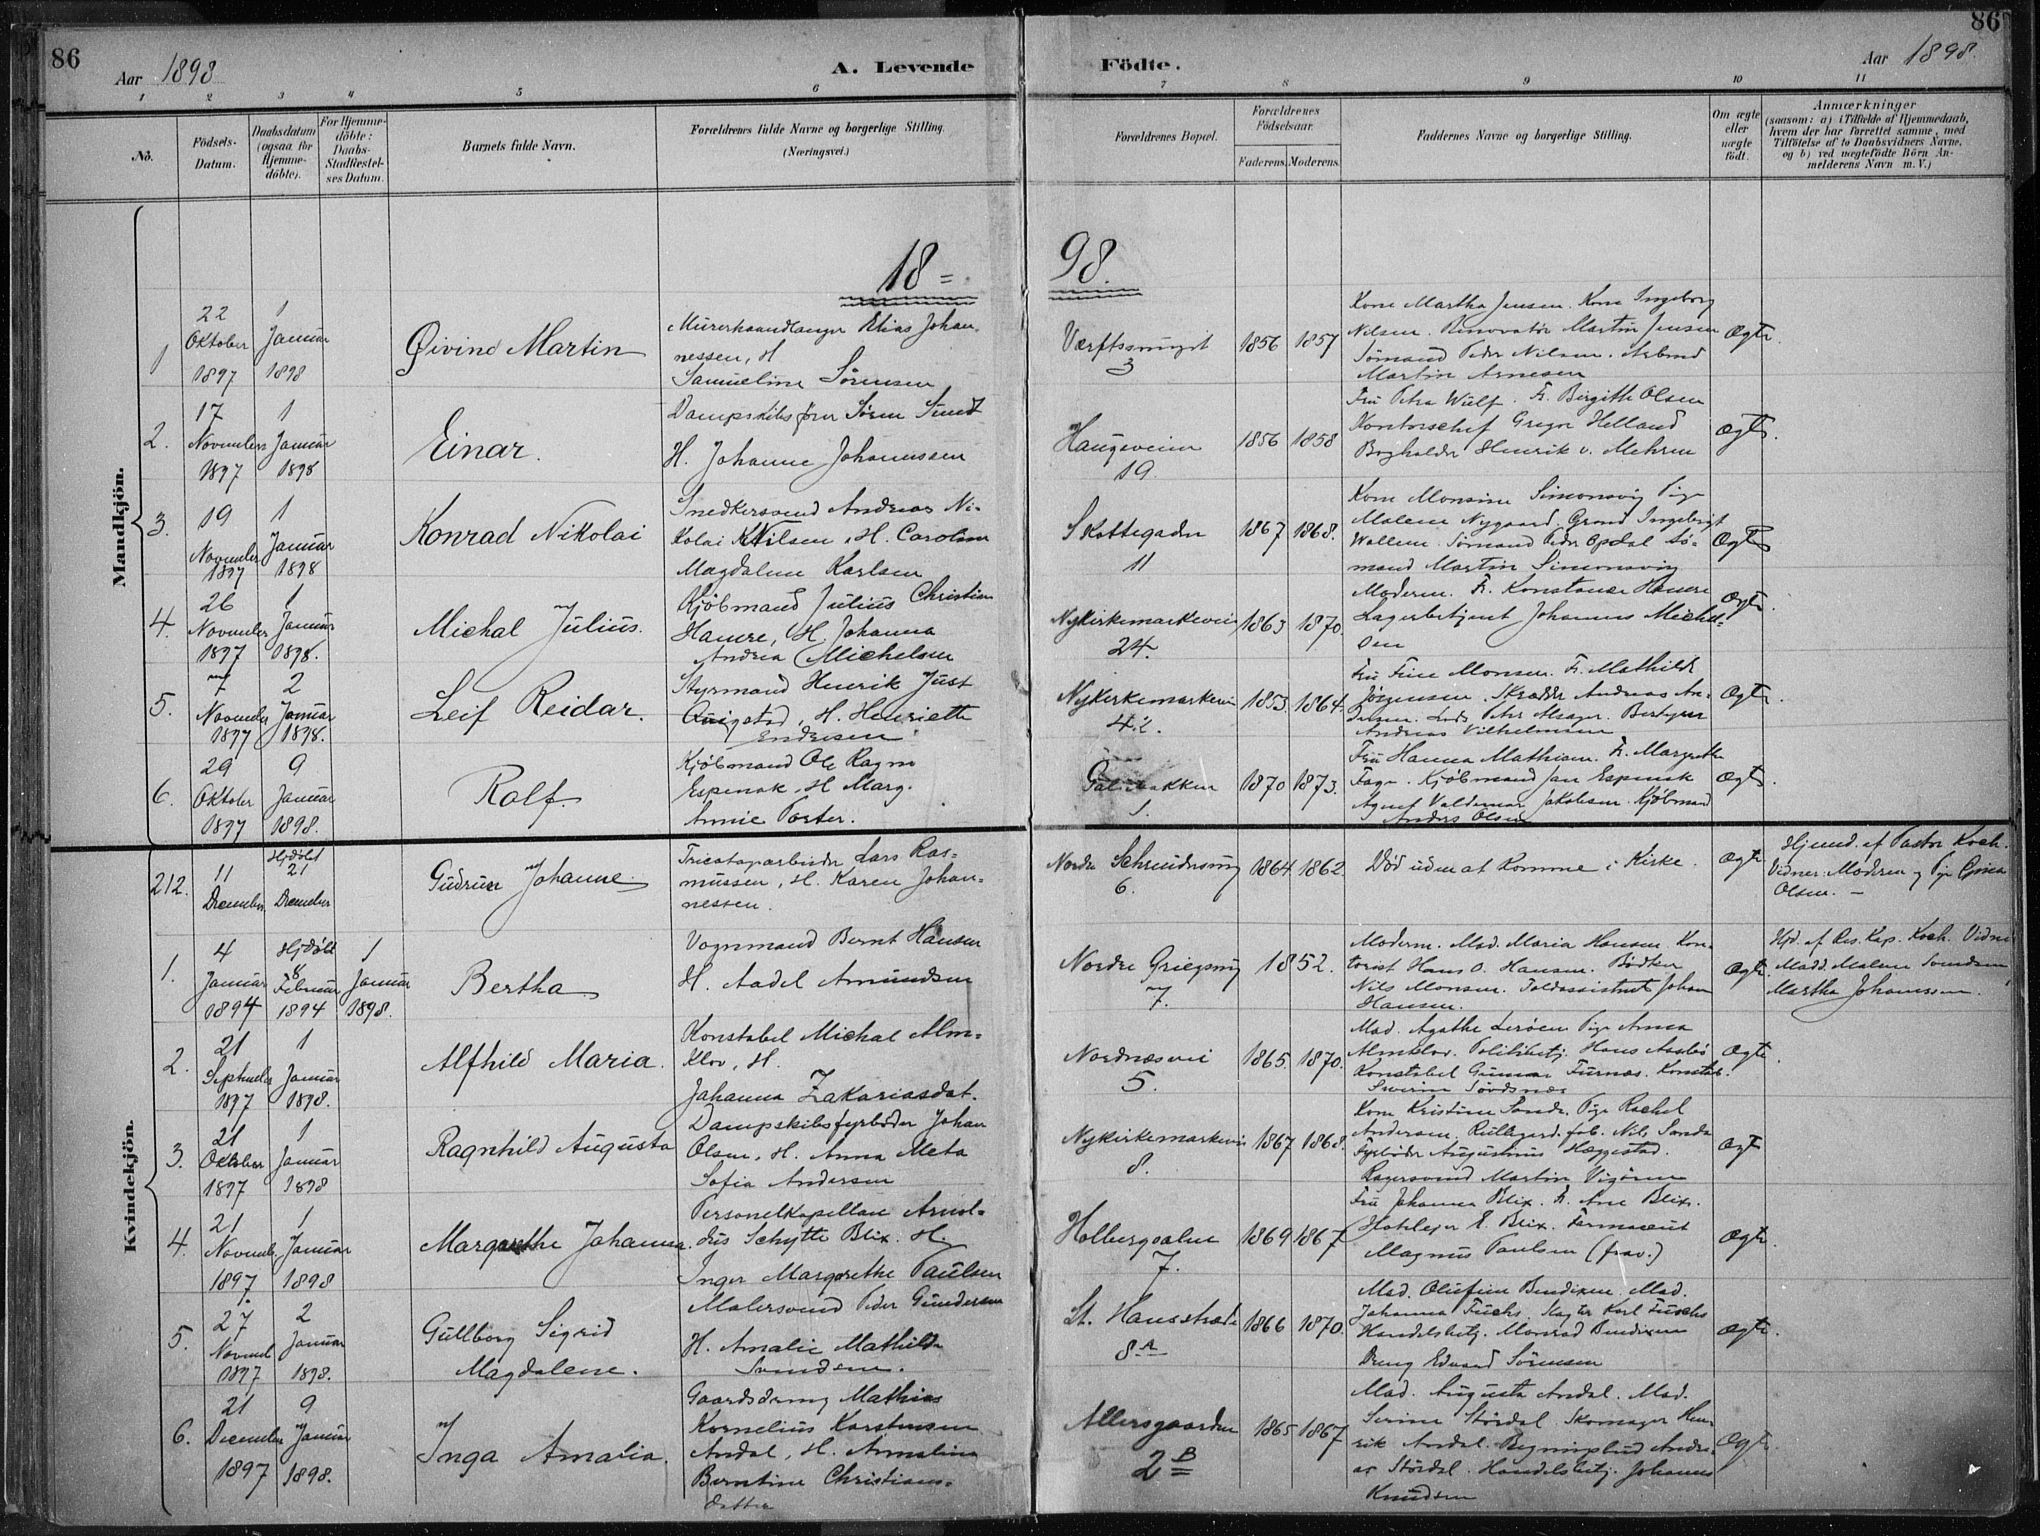 86
Aar 1898
A. Levende
Födte.
Aar 1898.
86
1 2 3 4 5 6 7 8 9 10 11
No.
Födsels-
Datum.
Daabsdatum
(ogsaa for
Hjemme-
döbte).
For Hjemme-
döbte:
Daabs-
Stadfæstel-
ses Datum.
Barnets fulde Navn.
Forældrenes fulde Navne og borgerlige Stilling.
(Næringsvei.)
Forældrenes Bopæl.
Forældrenes
Födselsaar.
Faderens. Moderens.
Faddernes Navne og borgerlige Stilling.
Om ægte
eller
uægte
födt.
Anmærkninger
(saasom: a) i Tilfælde af Hjemmedaab,
hvem der har forrettet samme, med
Tilföielse af to Daabsvidners Navne,
og b) ved uægtefödte Börn An-
melderens Navn m. V.)
18 = 98.
Mandkjön.
1
22
Oktober
1897
1
Januar
1898
Øivind Martin
Murerhaandlanger Elias Johan-
nessen, H
Samueline Sörensen
Værftssmuget
3
1856 1857
Kone Martha Jensen. Kone Ingeborg
Nilsen. Renovatör Martin Jensen
Sömand Peder Nilsen. Arbmd
Martin Arnesen
Ægte.
2.
17
November
1897
1
Januar
1898
Einar.
Dampskibsförer Sören Sundt
H. Johanne Johannessen
Haugeveien
19.
1856 1858
Fru Petra Wulf. Fr. Birgitte Olsen
Kontorschef Gregor Helland
Bogholder Henrik v. Mehren
Ægte.
3.
19
November
1897
1
Januar
1898
Konrad Nikolai
Snedkersvend Andreas Ni-
kolai Nilsen, H. Caroline
Magdalene Karlsen
Skottegaden
11
1867 1868.
Kone Monsine Simonsvig Pige
Malene Nygaard. Grosd Ingebrigt
Wallem. Sömand Peder Opdal Sö-
mand Martin Simonsvig
Ægte
4.
26
November
1897
1
Januar
1898.
Michal Julius.
Kjöbmand Julius Christian
Hamre, H. Johanna
Andrea Michelsen
Nykirkemarkevei
24.
1863 1870.
Moderen. Fr. Konstance Hamre
Lagerbetjent Johannes Michel-
sen
Ægte.
5.
7
November
1897
2
Januar
1898.
Leif Reidar.
Styrmand Henrik Just
Quigstad, H. Henriette
Endresen
Nykirkemarkevei
42.
1853. 1864.
Fru Fine Monsen. Fr. Mathilde
Jörgensen. Skrædder Andreas An-
dersen. Lods Peter Alsager. Bestyrer
Andreas Vilhelmsen
Ægte.
6.
29
Oktober
1897
9
Januar
1898.
Rolf.
Kjöbmand Ole Ragne
Espenak, H Marg.
Annie Porter.
1.
1870 1873.
Fru Hanna Mathisen. Fr. Margrethe
Fage. Kjöbmand Jan Espenak
Agent Valdemar Jakobsen. Kjöbmand
Anders Olsen
Ægte.
Kvindekjön.
212.
11
December
Hjdöbt
21
December
Gudrun Johanne.
Tricotagearbeider Lars Ras-
mussen, H. Karen Johan-
nessen.
Nordre Schreudersmug
6.
1864 1862.
Död uden at komme i Kirke.
Ægte
Hjemd. af Pastor Koch.
Vidner: Moderen og Pige Gina
Olsen. —
1.
4
Januar
1894
Hjdöbt
8
Februar
1894
1
Januar
1898.
Bertha
Vognmand Bernt Hansen
H. Aadel Amundsen
Nordre Griegsmug
7.
1852.
Moderen. Mad. Maria Hansen. Kon-
torist Hans O. Hansen. Bödker
Nils Monsen. Toldassistent Johan
Hansen.
Ægte
Hjd. af Res. Kap. Koch. Vidner
Madd. Malene Svendsen
Martha Johannessen.
2.
21
September
1897
1
Januar
1898.
Alfhild Maria.
Konstabel Michal Alm-
klov, H.
Johanna Zakariasdat.
Nordnæsvei
5.
1865. 1870.
Mad. Agathe Leröen Pige Anna
Almklov. Politibetj. Hans Aasbö
Konstabel Gunnar Furnæs. Konstab.
Severin Sövdsnæs
Ægte.
3.
21
Oktober
1897
1
Januar
1898
Ragnhild Augusta
Dampskibsfyrböder Johan
Olsen, H. Anna Meta
Sofia Andersen
Nykirkemarkevei
8.
1867 1868.
Kone Kristine Sande. Pige Rachel
Andersen. Nils Sande
Fyrböder Augustinus Hæggestad.
Bagersvend Martin
Ægt
4.
21
November
1897
1
Januar
1898
Margarethe Johanna.
Personelkapellan Arnol-
dus Schytte Blix. H.
Inger Margrethe Paulsen
Holbergsalm
7.
1869 1867
Fru Johanna Blix. Fr. Ane Blix.
E. Blix. Farmaceut
Magnus Paulsen (frav.)
Ægte.
5.
27
Novemb
1897
2
Januar
1898.
Gullborg Sigrid
Magdalene.
Malersvend Peder Gundersen
H. Amalie Mathilde
Svendsen.
St. Hansstræde
8 A
1866 1870.
Mad. Olufine Bendixen. Mad.
Johanna Fuchs. Karl Fuschs
Handelsbetj. Monrad Bendixen
Dreng Edvard Sörensen
Ægte.
6.
21
December
1897
9
Januar
1898.
Inga Amalia.
Gaardsdreng Mathias
Kornelius Karstensen
Andal, H. Annaline
Berntine Christians-
datter
Allersgaarden
2 B
1865 1867
Mad. Augusta Andal. Mad.
Serine Stördal. Skomager Hen-
rik Andal. Andre-
as Stördal. Handelsbetj. Johannes
Knudsen
Ægte.